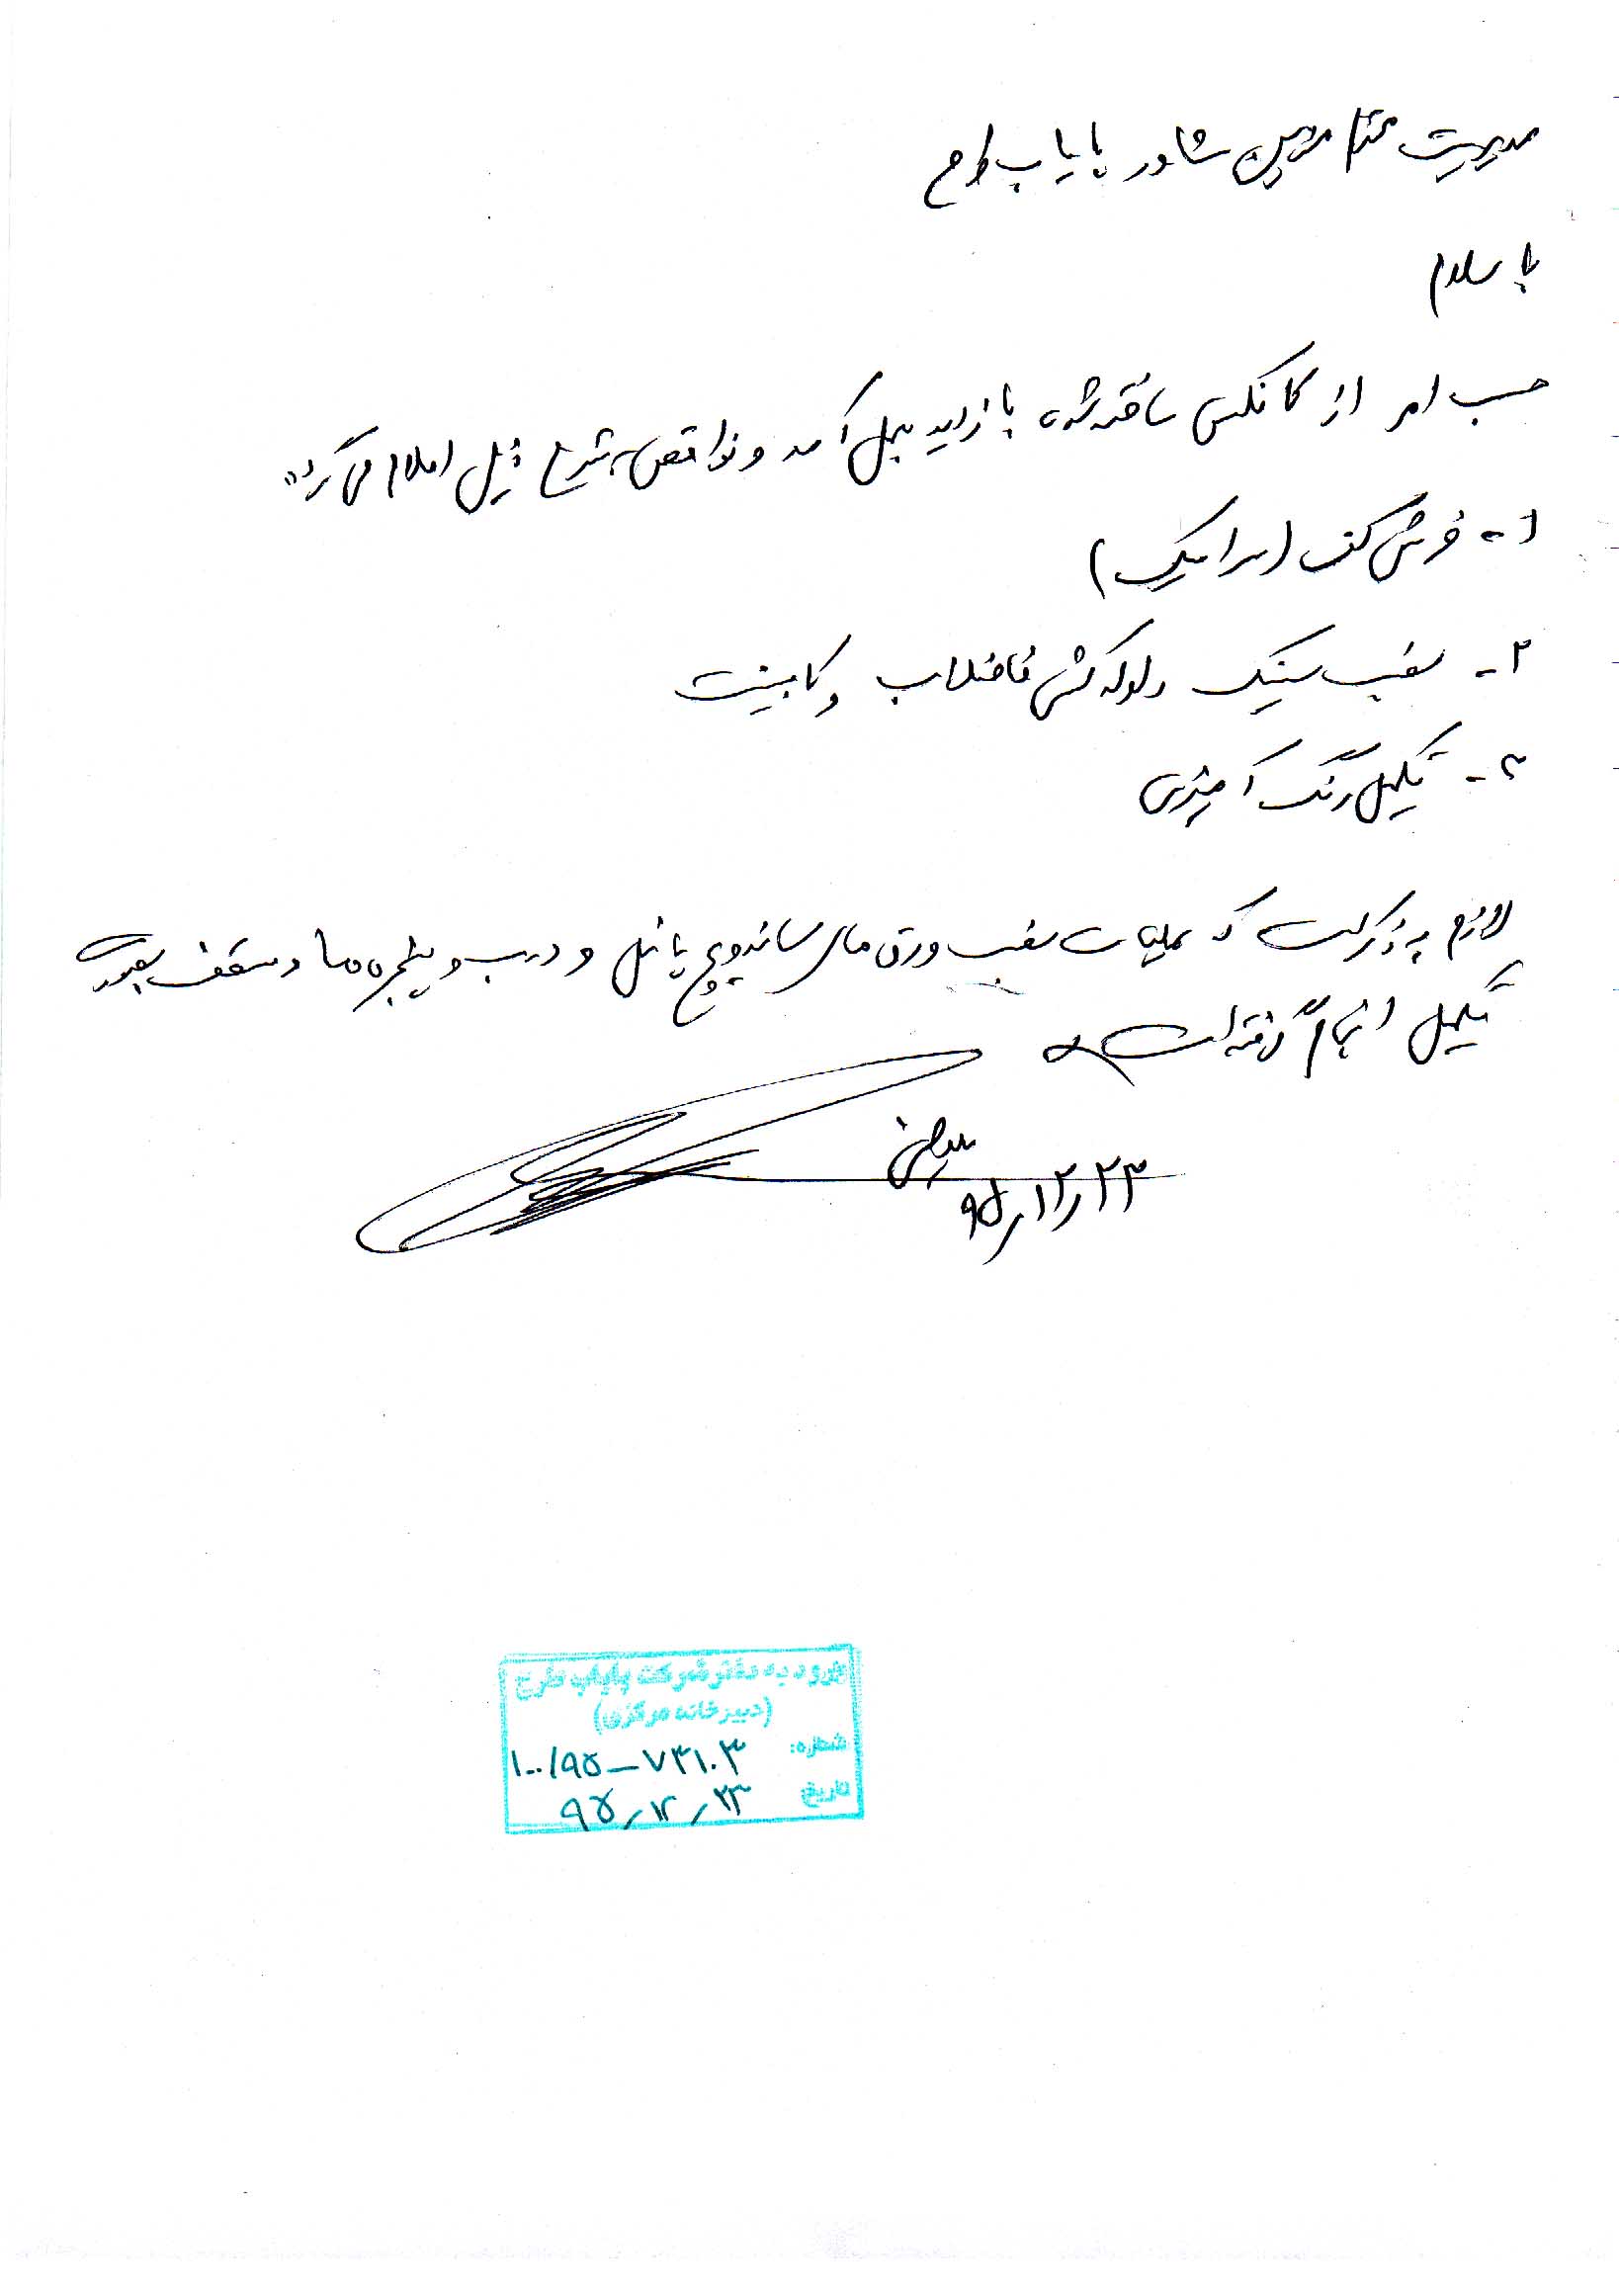 مدیریت محترم مهندسین مشاور پایاب طرح
با سلام
حسب امر از کانکس ساخته شده بازدید بعمل آمد و نواقص بشرح ذیل اعلام می گردد
۱- فرش کف (سرامیک)
۲- نصب سینک و لوله کشی فاضلاب و کابینت
۳- تکمیل رنگ آمیزی
لازم به ذکر است که عملیات نصب ورق های ساندویچ پانل و درب و پنجره ها و سقف بصورت
تکمیل انجام گرفته است
۹۵/۱۲/۲۳
ورود به دفتر شرکت پایاب طرح
(دبیرخانه مرکزی)
شماره: ۱۰۰/۹۵-۷۳۱۰۳
تاریخ ۹۵/۱۲/۲۳